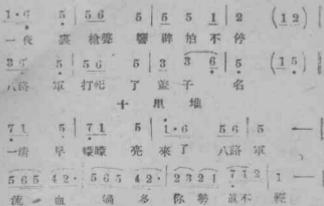 1·6 5 5 6 5 5 5 1 2 (1 2)
一夜裏槍聲響辟拍不停
3 6 5 5 6 5 3 3 6 5 (1 5)
八路軍打死了 子 名
十里堆
7 1 5 7 1 5 1·6 5 6 5 —
一清早矇矇亮來了八路軍
5 6 5 4 2· 5 6 5 4 2· 2 3 2 1 7 1 2 1 —
流血 多你 不輕